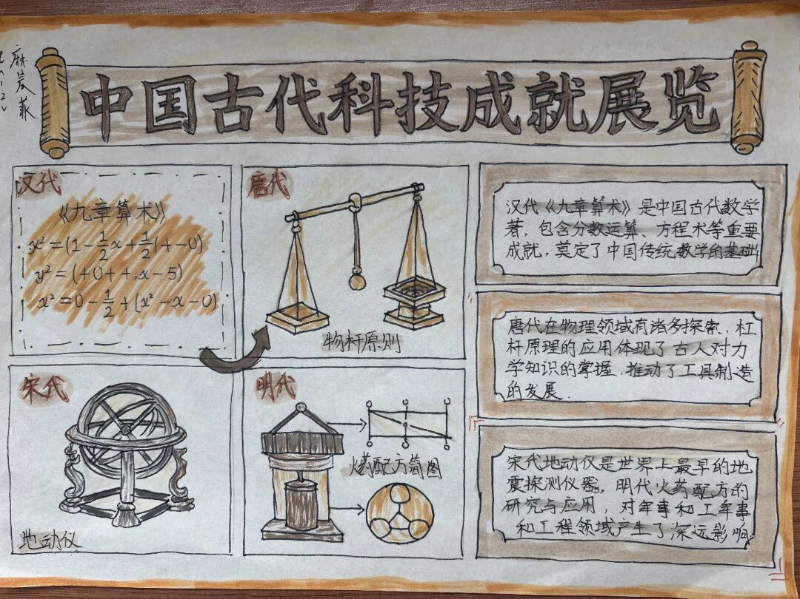 中国古代科技成就展览
汉代
《九章算术》
x²=(1-½x+½(+-0)
y²=(+0++.x-5)
x²=0-½+(x²-x-0)
唐代
物杆原则
宋代
地动仪
明代
火药配方简图
汉代《九章算术》是中国古代数学
著，包含分数运算、方程术等重要
成就，奠定了中国传统数学的基础
唐代在物理领域有诸多探索，杠
杆原理的应用体现了古人对力
学知识的掌握，推动了工具制造
的发展.
宋代地动仪是世界上最早的地
震探测仪器，明代火药配方的
研究与应用，对军事和工军事
和工程领域产生了深远影响